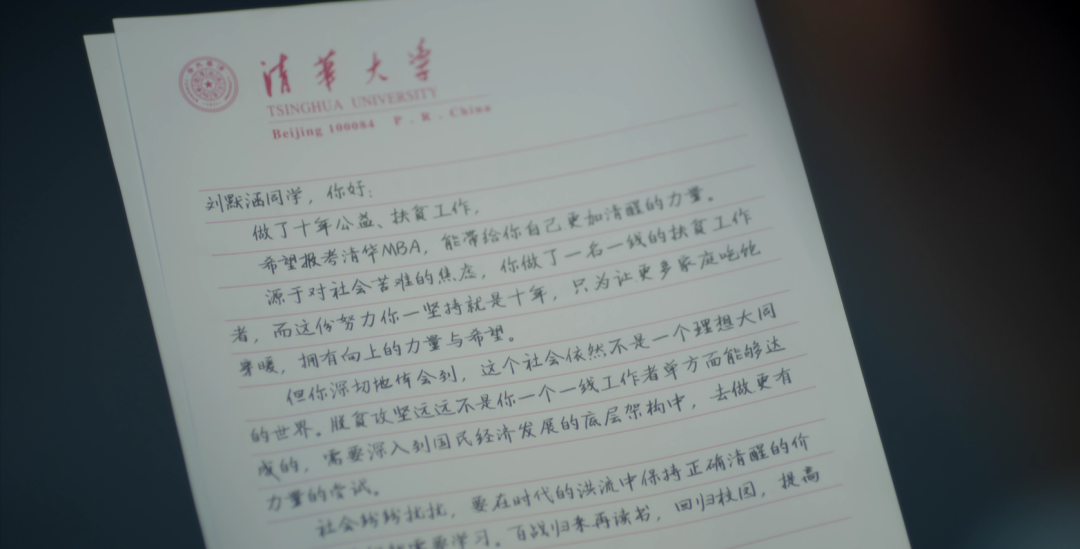 清华大学
TSINGHUA UNIVERSITY
Beijing 100084 P.R.China
刘默涵同学，你好：
做了十年公益、扶贫工作，
希望报考清华MBA，能带给你自己更加清醒的力量。
源于对社会苦难的焦虑，你做了一名一线的扶贫工作
者，而这份努力你一坚持就是十年，只为让更多家庭吃饱
穿暖，拥有向上的力量与希望。
但你深切地体会到，这个社会依然不是一个理想大同
的世界。脱贫攻坚远远不是你一个一线工作者单方面能够达
成的，需要深入到国民经济发展的底层架构中，去做更有
力量的尝试。
社会纷纷扰扰，要在时代的洪流中保持正确清醒的价
需要学习。百战归来再读书，回归校园，提高